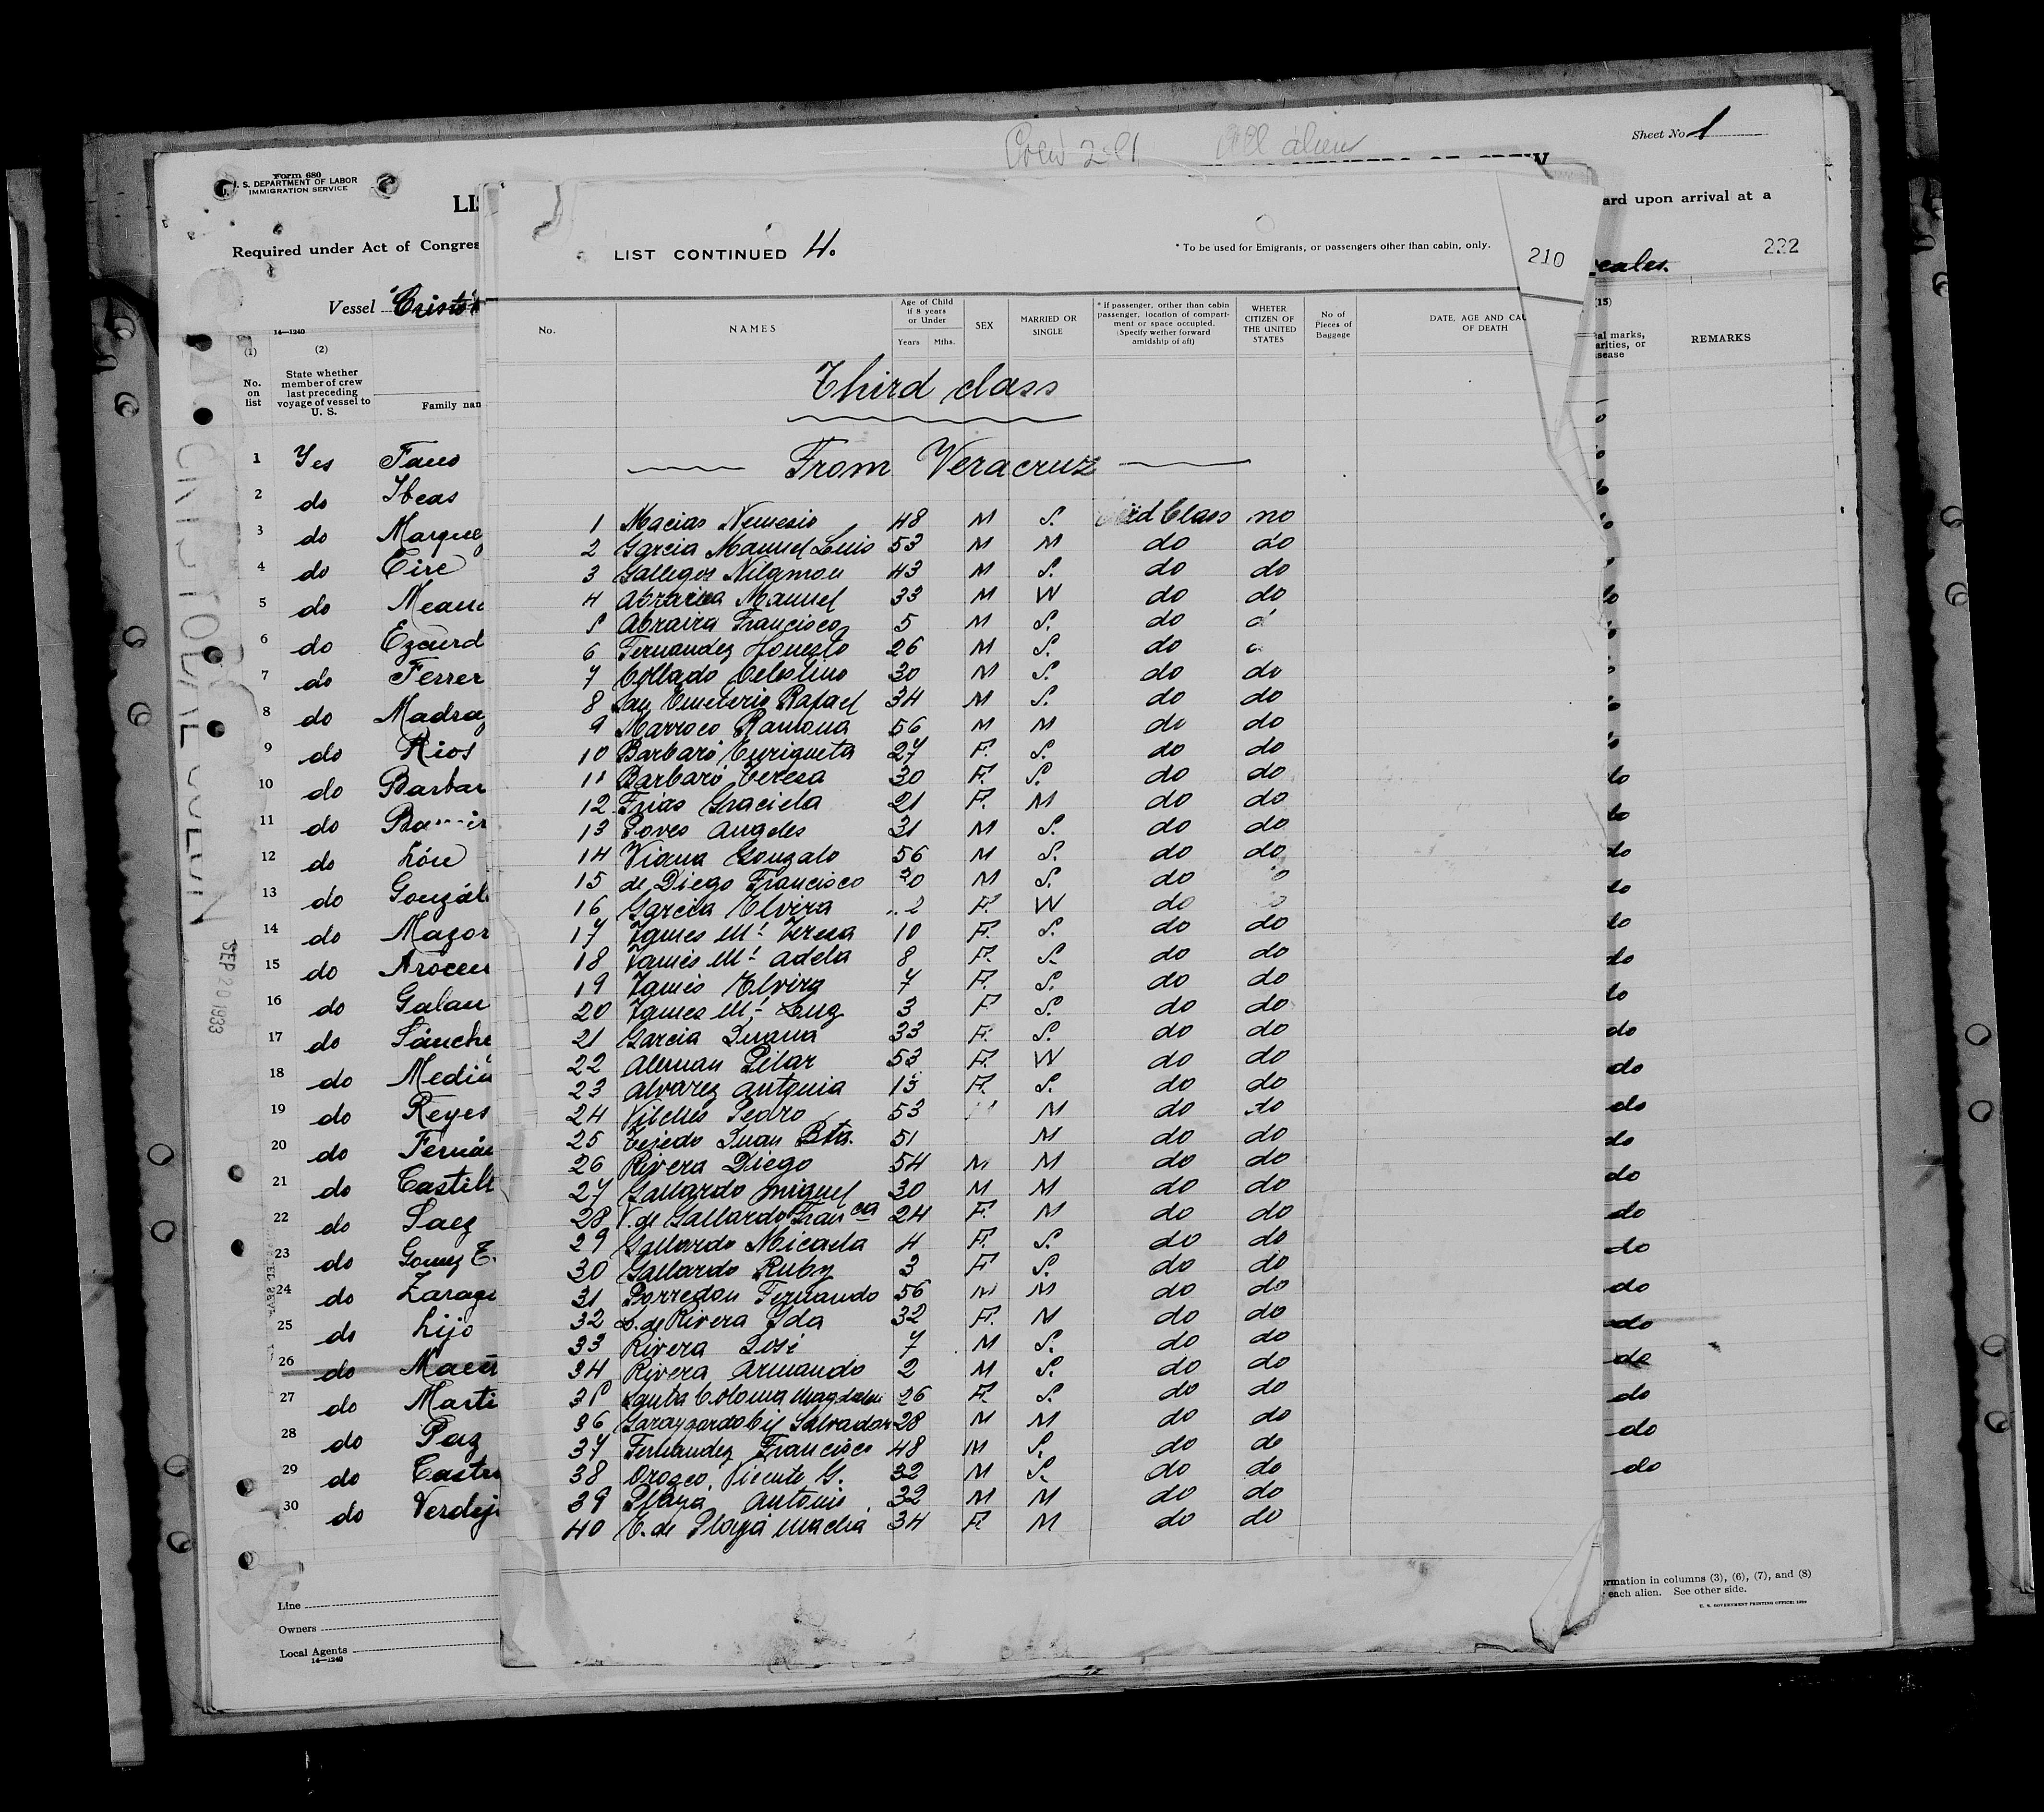 Crew 201 All alien
Sheet No 1
Form 680
U. S. DEPARTMENT OF LABOR
IMMIGRATION SERVICE
LIS
Required under Act of Congres
ard upon arrival at a
222
eales.
Vessel "Cristó
14—1240
(1) (2) (15)
No. on list
State whether member of crew last preceding voyage of vessel to U. S.
Family nam
REMARKS
1 Yes Fano
2 do Ibeas
3 do Marquez
4 do Eire
5 do
6 do Ezcurd
7 do Ferrer
8 do Madraz
9 do Rios
10 do Barbar
11 do
12 do
13 do Gonzál
14 do Mazor
15 do Arocen
16 do Galan
17 do Sánche
18 do Medin
19 do Reyes
20 do Fernán
21 do Castill
22 do Saez
23 do Gomez
24 do Zarago
25 do Lijo
26 do
27 do Marti
28 do Paz
29 do Castr
30 do Verdej
Line
Owners
Local Agents
14—1240
CRISTOBAL COLON
SEP 20 1933
LIST CONTINUED 4.
* To be used for Emigrants, or passengers other than cabin, only.
210
No.
NAMES
Age of Child if 8 years or Under
Years Mths.
SEX
MARRIED OR SINGLE
* if passenger, orther than cabin passenger, location of compartment or space occupied. (Specify wether forward amidship of aft)
WHETER CITIZEN OF THE UNITED STATES
No of Pieces of Baggage
DATE, AGE AND CAU
OF DEATH
Third class
From Veracruz
1 Macias Nemesio 48 M S. rd Class no
2 Garcia Manuel Luis 53 M M do do
3 Gallegos Nilamon 43 M S. do do
4 Abraira Manuel 33 M W do do
5 Abraira Francisco 5 M S. do d
6 Fernandez Honesto 26 M S. do
7 Collado Celestino 30 M S. do do
8 San Emeterio Rafael 34 M S. do do
9 Marroco Ramona 56 M M do do
10 Barbaró Enriqueta 27 F. S. do do
11 Barbaró Teresa 30 F. S. do do
12 Frias Graciela 21 F. M do do
13 Poves Angeles 31 M S. do do
14 Viana Gonzalo 56 M S. do do
15 de Diego Francisco 30 M S. do o
16 Garcia Elvira 2 F. W do o
17 Tames Mª Teresa 10 F. S. do do
18 Tames Mª Adela 8 F. S. do do
19 Tames Elvira 7 F. S. do do
20 Tames Mª Luz 3 F S. do do
21 Garcia Juana 33 F. S. do do
22 Aleman Pilar 53 F. W do do
23 Alvarez Antonia 15 F. S. do do
24 Vilches Pedro 53 M do do
25 Tejedo Juan Bta. 51 M do do
26 Rivera Diego 54 M M do do
27 Gallardo Miguel 30 M M do do
28 V. de Gallardo Franca 24 F. M do do
29 Gallardo Micaela 4 F. S. do do
30 Gallardo Ruby 3 F S. do do
31 Porredon Fernando 56 M M do do
32 S. de Rivera Ida 32 F. M do do
33 Rivera José 7 M S. do do
34 Rivera Armando 2 M S. do do
35 Santa Coloma Magdalen 26 F. S. do do
36 Garayzardobil Salvador 28 M M do do
37 Fernandez Francisco 48 M S. do do
38 Orozco Vicente G. 32 M S. do do
39 Playá Antonio 32 M M do do
40 E. de Playá Maria 34 F. M do do
al marks,
arities, or
sease
do
do
do
do
do
do
do
do
do
do
do
do
do
do
do
do
do
do
do
do
ormation in columns (3), (6), (7), and (8)
each alien. See other side.
U. S. GOVERNMENT PRINTING OFFICE: 1930